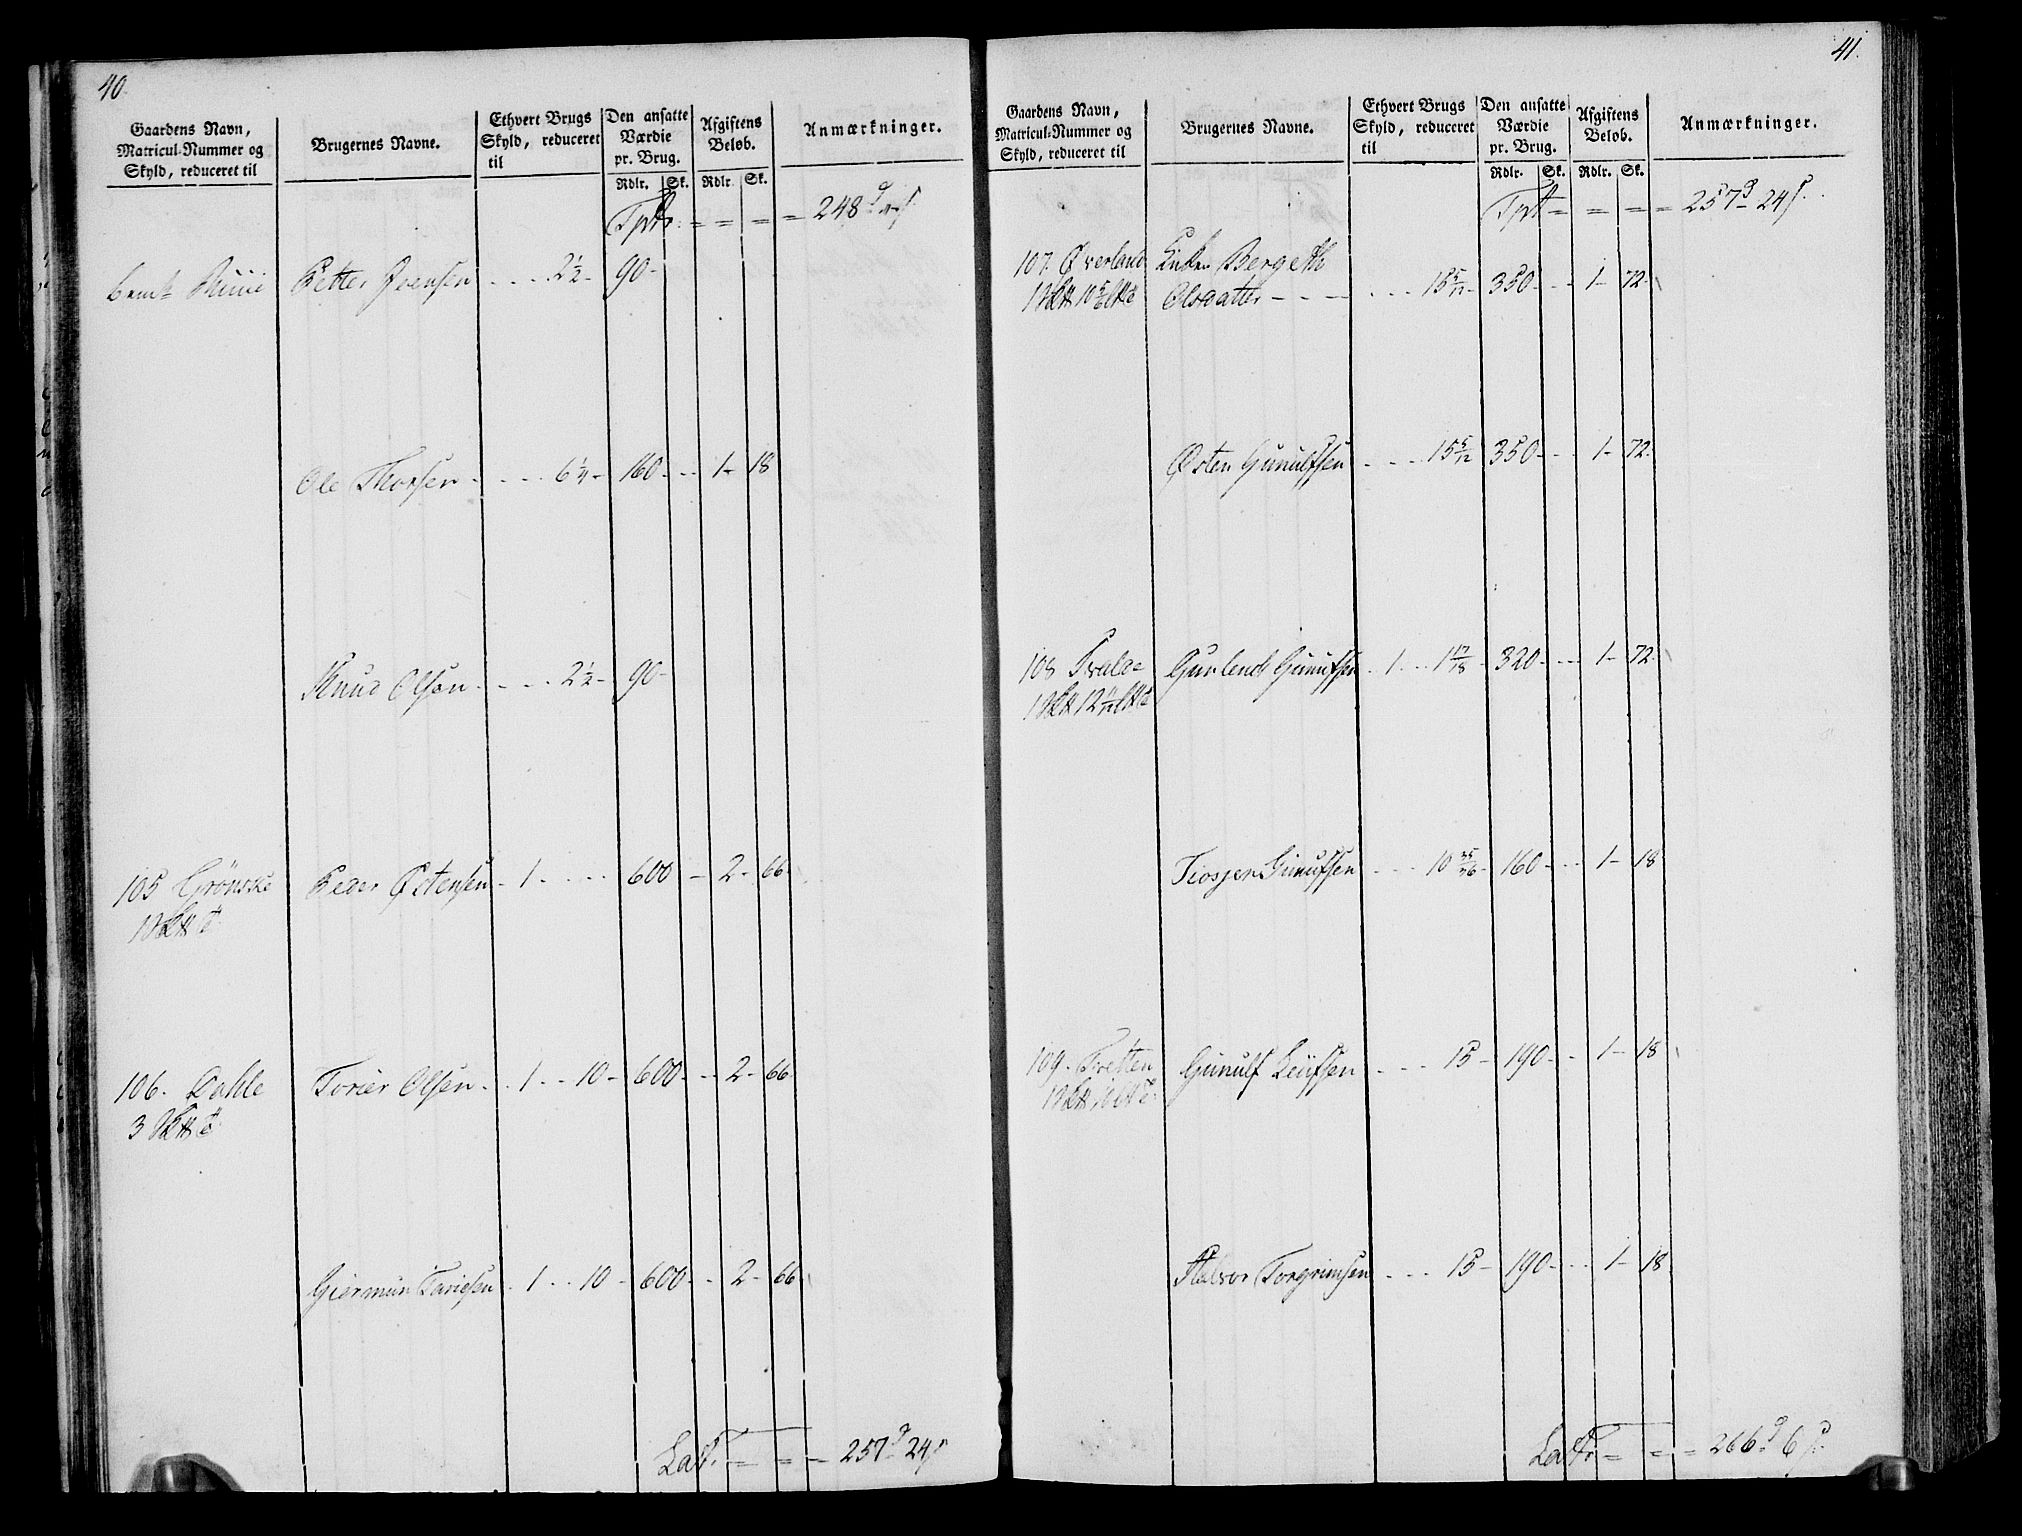 40.
Gaardens Navn,
Matricul-Nummer og
Skyld, reduceret til
Brugernes Navne.
Ethvert Brugs
Skyld, reduceret
til
Den ansatte
Værdie
pr. Brug.
Afgiftens
Beløb.
Anmærkninger.
Rdlr. Sk. Rdlr. Sk.
= = = 248
Petter 2½ - 90 -
Ole Thorsen - - - - 6¼ - 160 - - 1 - 18
Knud Olsen - - - - 2½ - 90 -
105 Grönske Peder Østensen - 1 - - - 600 - 2 - 66
106. Dahle Torier Olsen - 1 - - 10 - 600 - - 2 - 66
3
Giermun Tariesen 1 - - 10 - 600 - - 2 - 66
= = 257 24
41.
Gaardens Navn,
Matricul-Nummer og
Skyld, reduceret til
Brugernes Navne.
Ethvert Brugs
Skyld, reduceret
til
Den ansatte
Værdie
pr. Brug.
Afgiftens
Beløb.
Anmærkninger.
Rdlr. Sk. Rdlr. Sk.
= = = 257 24
107. Øverland Enken Bergeth
Olsdatter - - - - - - 15 5/12 - 350 - - 1 - 72
Østen Gunulfsen - - - 15 5/12 350 - - 1 - 72
108 Gunufsen 1 - - 1 17/18 - 320 - - 1 - 72
Gunufsen - - - 10 - 160 - - 1 - 18
109. Tvetten Gunulf Leifsen - - - 15 - 190 - - 1 - 18
Halvor Torgrimsen - - - 15 - 190 - - 1 - 18
= = = 266 6